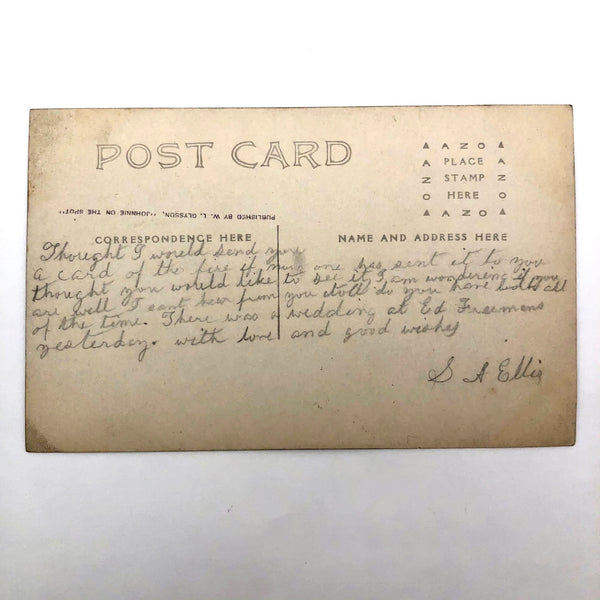 POST CARD
▲ A Z O ▲
A PLACE A
N STAMP Z
Z HERE O
▲ O Z A ▲
PUBLISHED BY W. L. GLYSSON, "JOHNNIE ON THE SPOT"
CORRESPONDENCE HERE
NAME AND ADDRESS HERE
Thought I would send you
a card of the fire if one has sent it to you
thought you would like to see it I am wondering if you
are well I cant hear from you do you have all
of the time. There was a wedding at Ed Freemans
yesterday. with love and good wishes
S A Ellis